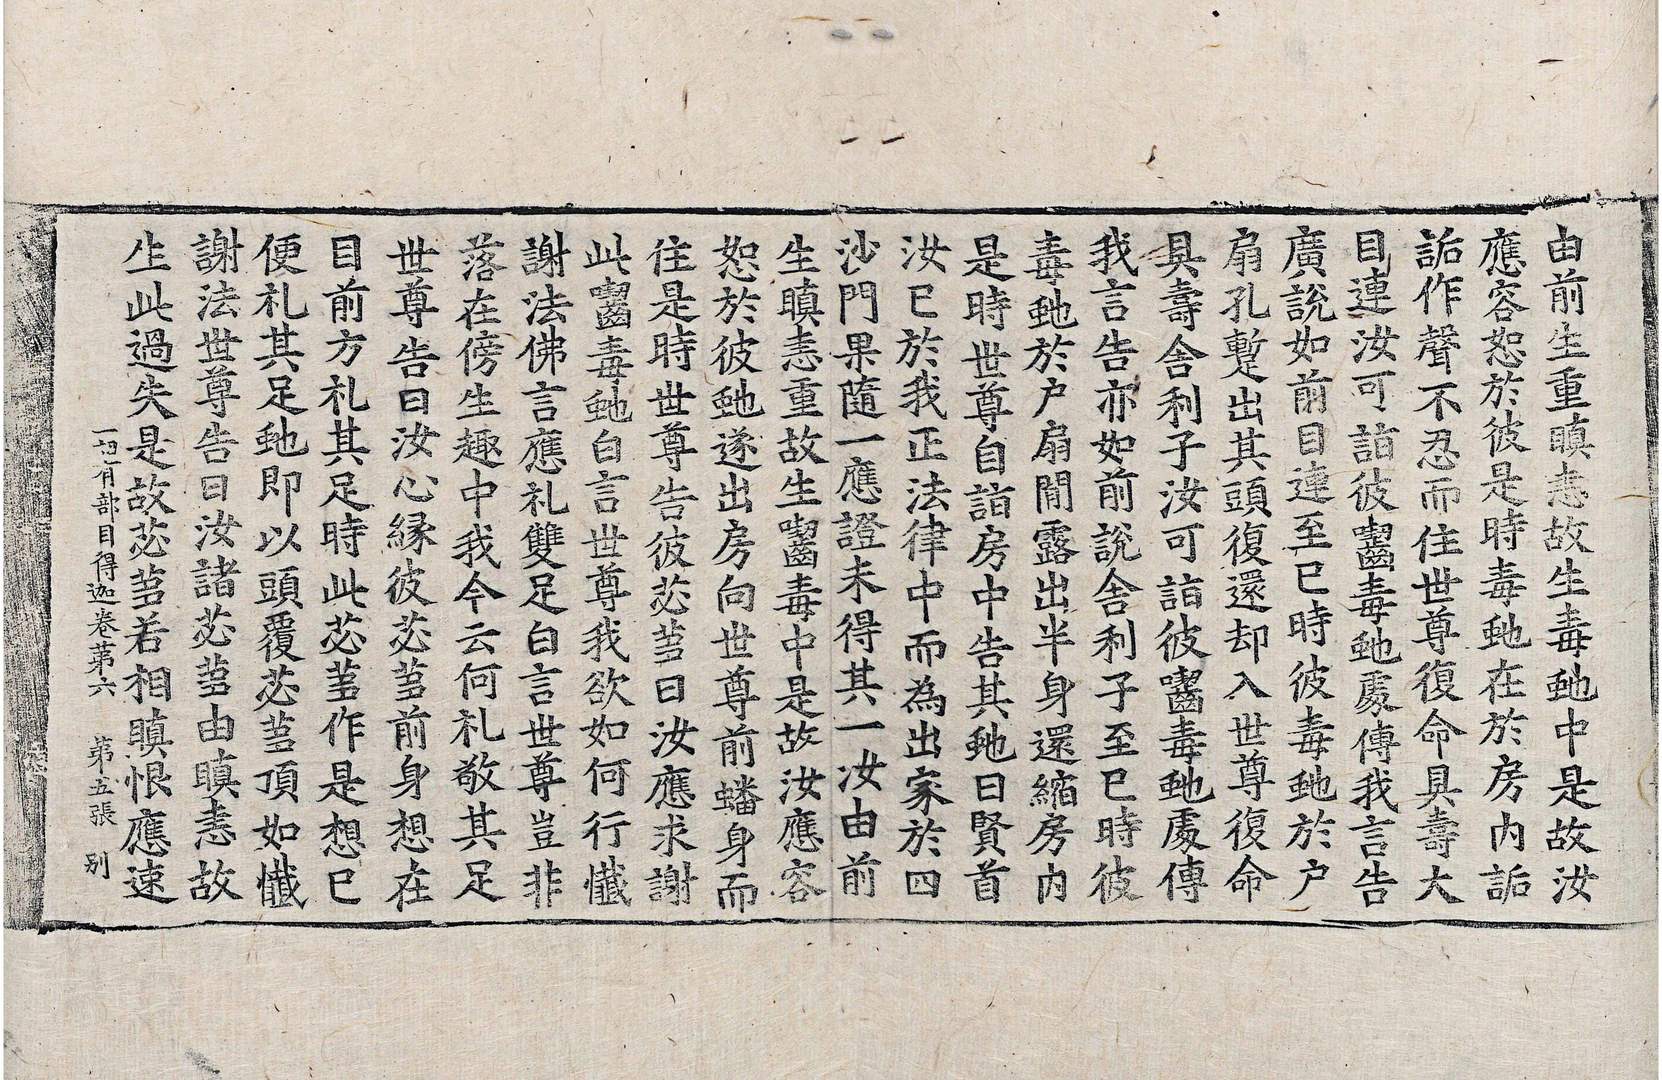 由前生重瞋恚故生毒虵中是故汝
應容恕於彼是時毒虵在於房內詬
詬作聲不忍而住世尊復命具壽大
目連汝可詣彼齧毒虵處傳我言告
廣說如前目連至已時彼毒虵於户
扇孔蹔出其頭復還却入世尊復命
具壽舍利子汝可詣彼齧毒虵處傳
我言告亦如前說舍利子至已時彼
毒虵於户扇閒露出半身還縮房內
是時世尊自詣房中告其虵曰賢首
汝已於我正法律中而為出家於四
沙門果隨一應證未得其一汝由前
生瞋恚重故生齧毒中是故汝應容
恕於彼虵遂出房向世尊前蟠身而
住是時世尊告彼苾芻曰汝應求謝
此齧毒虵白言世尊我欲如何行懺
謝法佛言應礼雙足白言世尊豈非
落在傍生趣中我今云何礼敬其足
世尊告曰汝心緣彼苾芻前身想在
目前方礼其足時此苾芻作是想已
便礼其足虵即以頭覆苾芻頂如懺
謝法世尊告曰汝諸苾芻由瞋恚故
生此過失是故苾芻若相瞋恨應速
一切有部目得迦卷第六 第五張 别